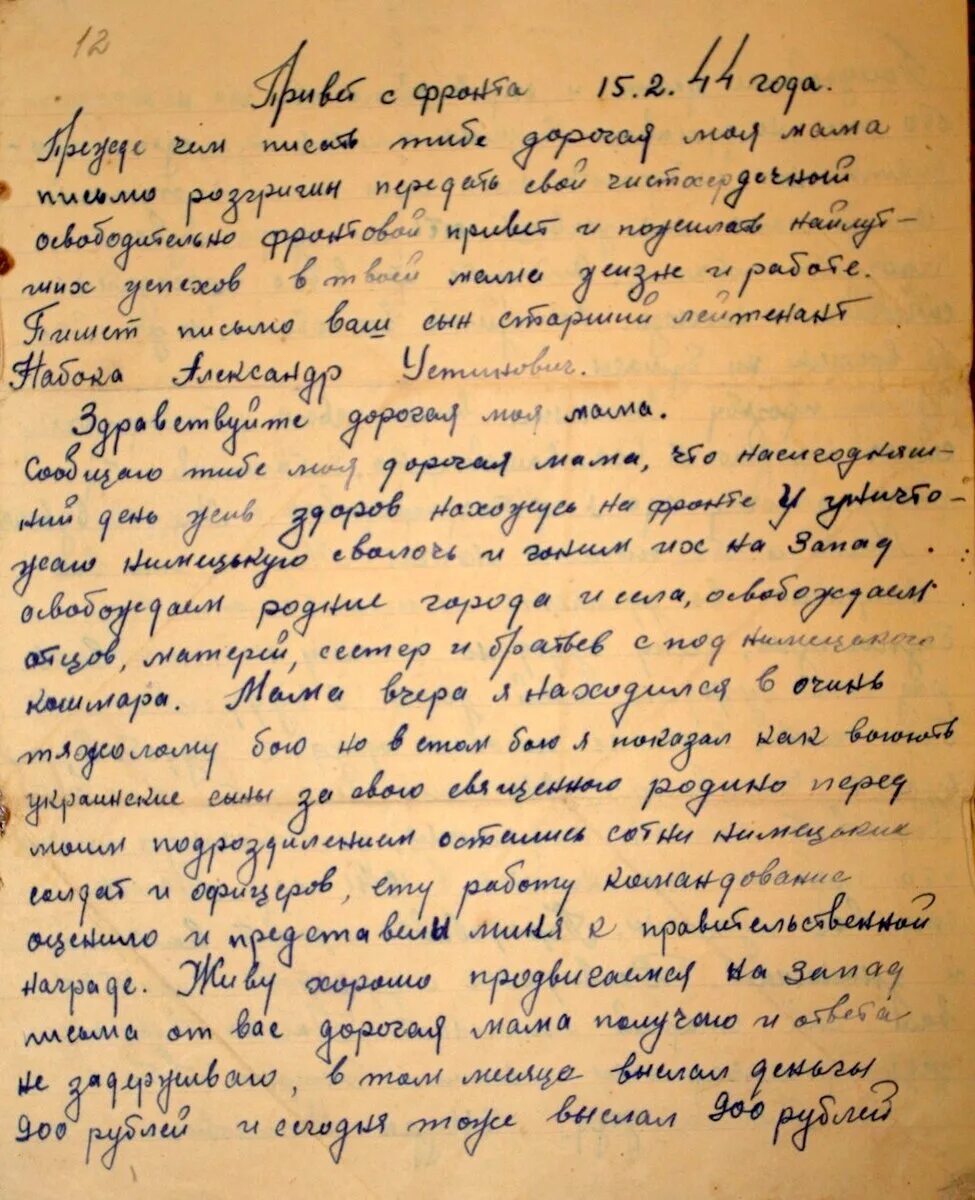 12
Привет с фронта 15.2.44 года.
Прежде чем писать тибе дорогая моя мама
письмо розгришин передать свой чистосердечный
освободительно фронтовой привет и пожилать найлут-
ших успехов в твоей мама жизне и работе.
Пишет письмо ваш сын старший лейтенант
Набока Александр Устинович.
Здравствуйте дорогая моя мама.
Сообщаю тибе моя дорогая мама, что насигодняш-
ний день жив здоров нахожусь на фронте и уничто-
жаю нимецькую сволочь и гоним их на Запад.
освобождаем родние города и села, освобождаем
отцов, матерей, сестер и братьев с под нимецького
кошмара. Мама вчера я находился в очинь
тяжолому бою но в етом бою я показал как воюють
украинские сыны за свою священною родину перед
моим подроздилением остались сотни нимецьких
солдат и офицеров, ету работу командование
оценило и представелы миня к правительственной
награде. Живу хорошо продвигаемся на запад
письма от вас дорогая мама получаю и ответа
не задерживаю, в том месяце выслал деньги
900 рублей и сегодня тоже выслал 900 рублей